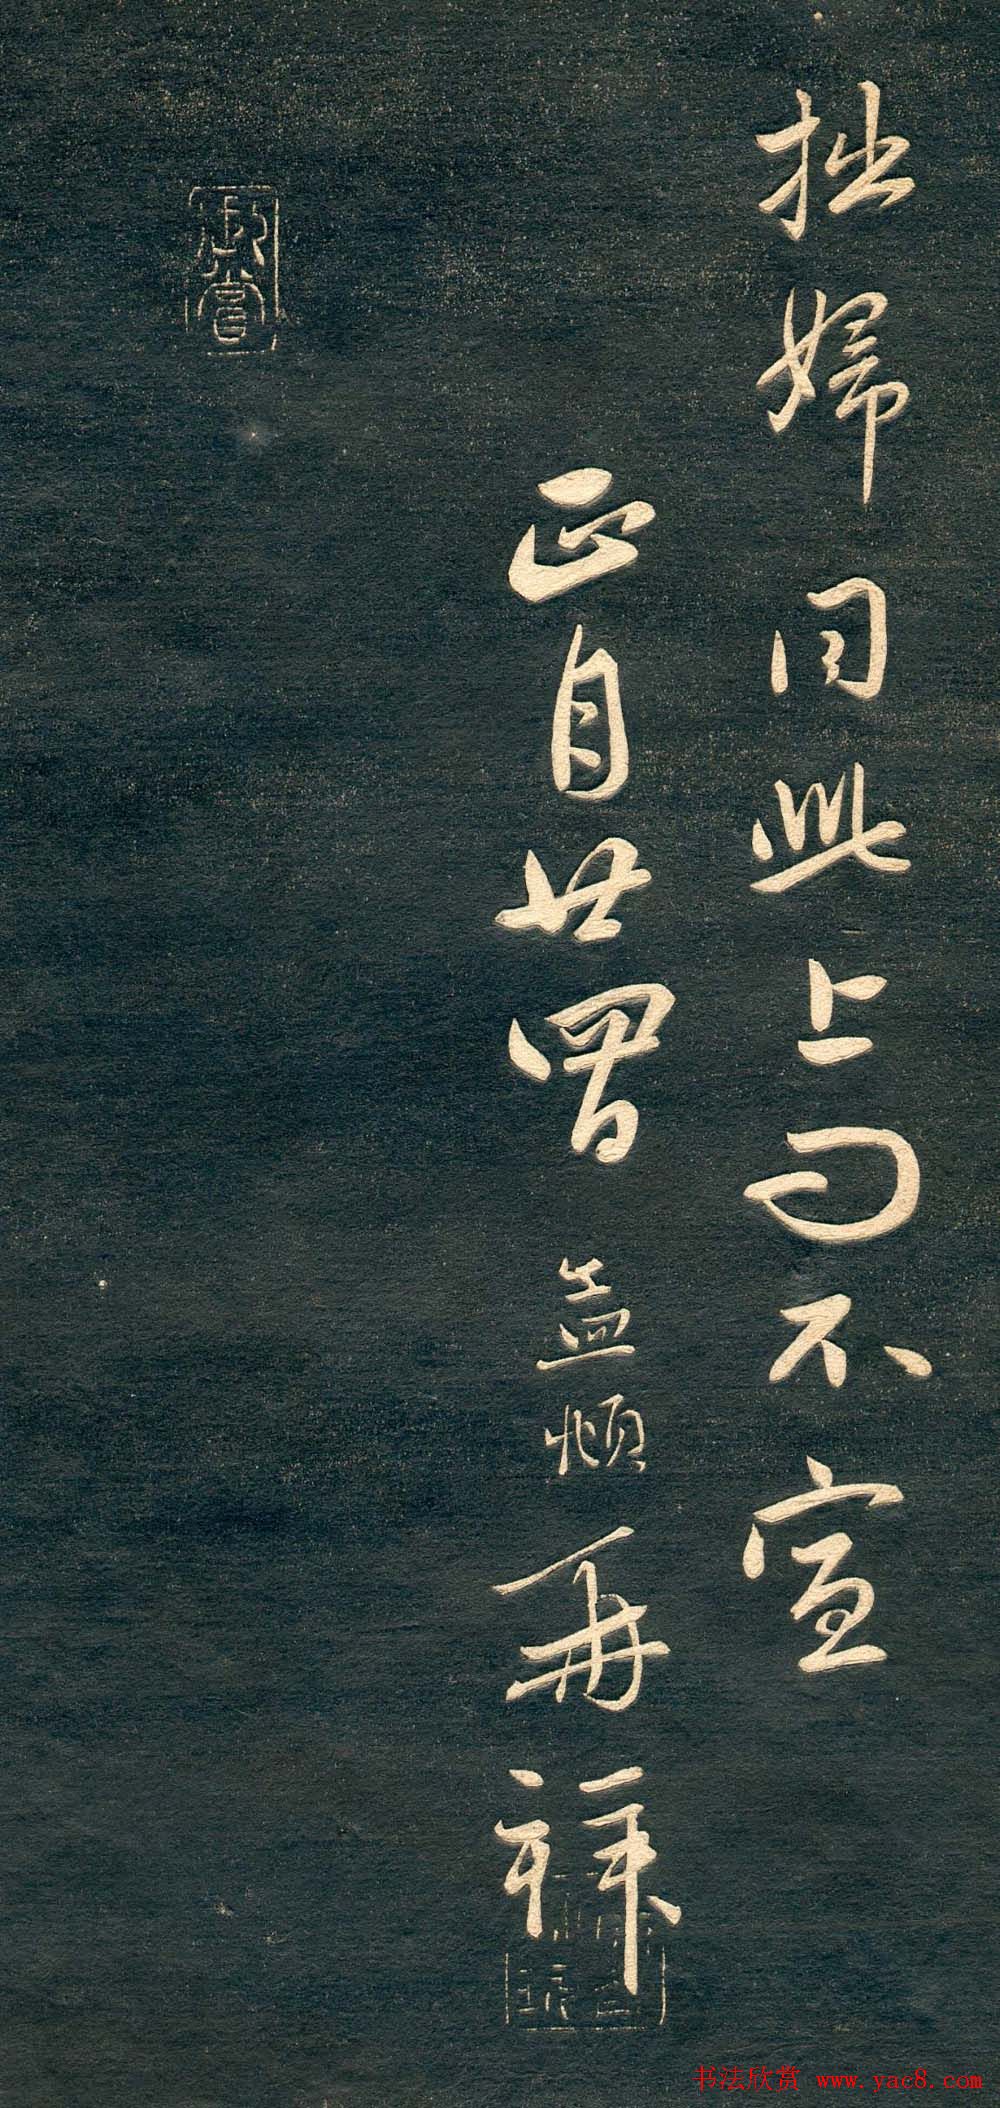 拙婦同此上問不宣
正月廿四日孟頫再拜
书法欣赏 www.yac8.com